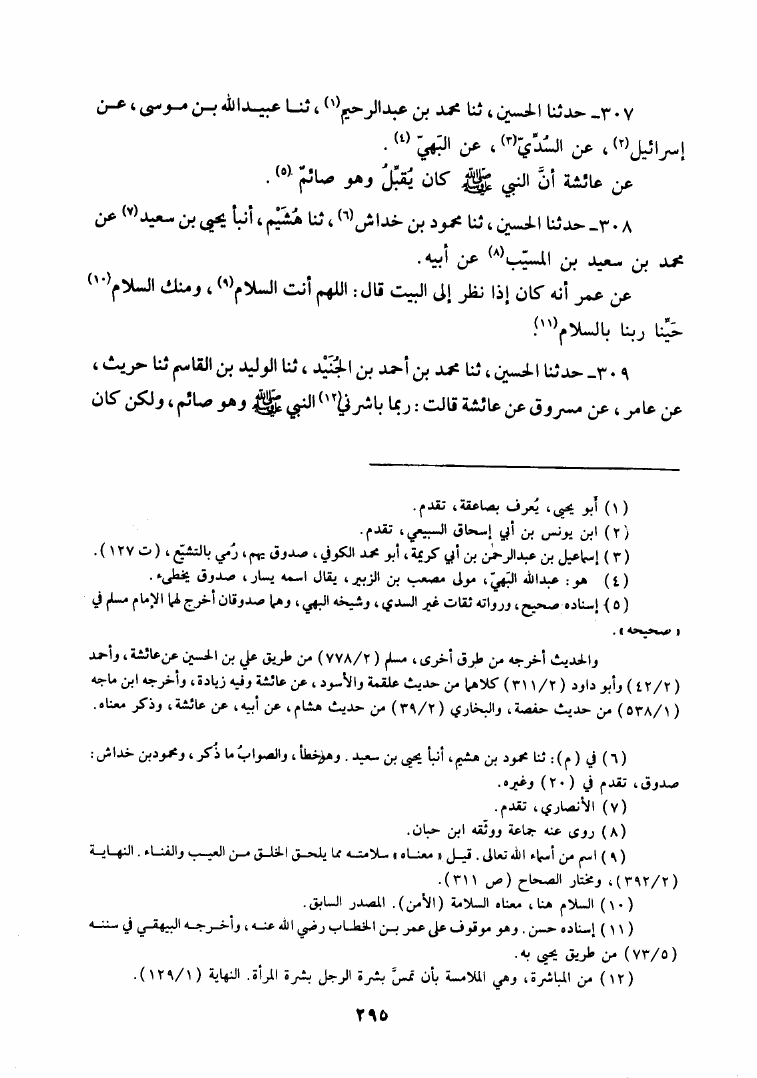 ٣٠٧ـ حدثنا الحسين، ثنا محمد بن عبدالرحيم(١)، ثنا عبيدالله بن موسى، عن
إسرائيل(٢)، عن السُّدِّيّ(٣)، عن البَهيّ(٤).
عن عائشة أنَّ النبي ﷺ كان يُقبِّلُ وهو صائمٌ(٥).
٣٠٨ـ حدثنا الحسين، ثنا محمود بن خداش(٦)، ثنا هُشَيْم، أنبأ يحيى بن سعيد(٧) عن
محمد بن سعيد بن المسيّب(٨) عن أبيه.
عن عمر أنه كان إذا نظر إلى البيت قال: اللهم أنت السلام(٩)، ومنك السلام(١٠)
حَيِّنا ربنا بالسلام(١١).
٣٠٩ـ حدثنا الحسين، ثنا محمد بن أحمد بن الجُنَيْد، ثنا الوليد بن القاسم ثنا حريث،
عن عامر، عن مسروق عن عائشة قالت: ربما باشرني(١٢) النبي ﷺ وهو صائم، ولكن كان
(١) أبو يحيى، يُعرف بصاعقة، تقدم.
(٢) ابن يونس بن أبي إسحاق السبيعي، تقدم.
(٣) إسماعيل بن عبدالرحمٰن بن أبي كريمة، أبو محمد الكوفي، صدوق يهم، رُمي بالتشيّع، (ت ١٢٧).
(٤) هو: عبدالله البَهيّ، مولى مصعب بن الزبير، يقال اسمه يسار، صدوق يخطىء.
(٥) إسناده صحيح، ورواته ثقات غير السدي، وشيخه البهي، وهما صدوقان أخرج لهما الإمام مسلم في
«صحيحه».
والحديث أخرجه من طرق أخرى، مسلم (٧٧٨/٢) من طريق علي بن الحسين عن عائشة، وأحمد
(٤٢/٢) وأبو داود (٣١١/٢) كلاهما من حديث علقمة والأسود، عن عائشة وفيه زيادة، وأخرجه ابن ماجه
(٥٣٨/١) من حديث حفصة، والبخاري (٣٩/٢) من حديث هشام، عن أبيه، عن عائشة، وذكر معناه.
(٦) في (م): ثنا محمود بن هشيم، أنبأ يحيى بن سعيد. وهو خطأ، والصوابُ ما ذُكر، ومحمود بن خداش:
صدوق، تقدم في (٢٠) وغيره.
(٧) الأنصاري، تقدم.
(٨) روى عنه جماعة ووثّقه ابن حبان.
(٩) اسم من أسماء الله تعالى. قيل «معناه» سلامته مما يلحق الخلق من العيب والفناء. النهاية
(٣٩٢/٢)، ومختار الصحاح (ص ٣١١).
(١٠) السلام هنا، معناه السلامة (الأمن). المصدر السابق.
(١١) إسناده حسن. وهو موقوف على عمر بن الخطاب رضي الله عنه، وأخرجه البيهقي في سننه
(٧٣/٥) من طريق يحيى به.
(١٢) من المباشرة، وهي الملامسة بأن تمسَّ بشرة الرجل بشرة المرأة. النهاية (١٢٩/١).
٢٩٥